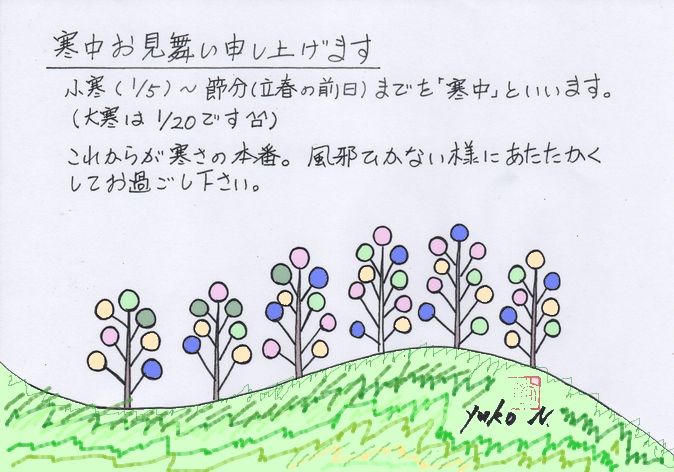 寒中お見舞い申し上げます
小寒(1/5)～節分(立春の前日)までを「寒中」といいます。
(大寒は1/20です
これからが寒さの本番。風邪ひかない様にあたたかく
してお過ごし下さい。
yuko N.